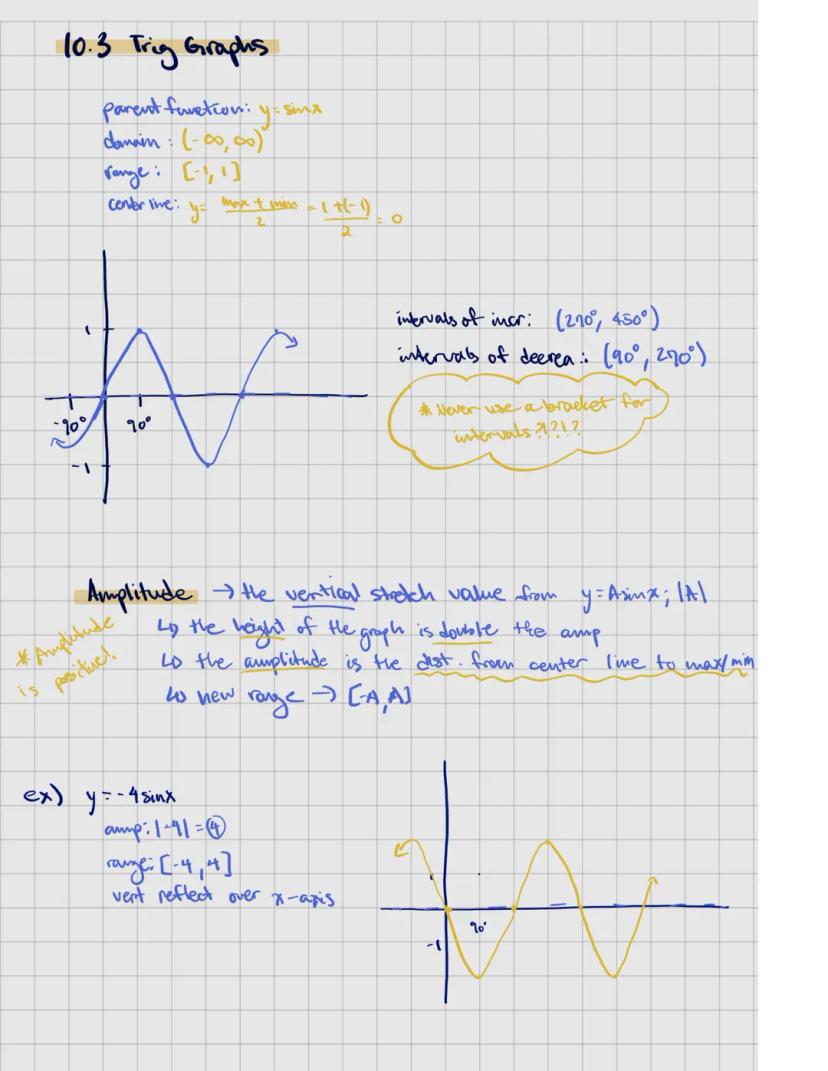 10.3 Trig Graphs
parent function: y = sinx
domain : (-∞, ∞)
range : [-1, 1]
center line: y = max + min / 2 = 1 + (-1) / 2 = 0
1
-90° 90°
-1
intervals of incr: (270°, 450°)
intervals of decrea.: (90°, 270°)
* Never use a bracket for
intervals ?!?!?
Amplitude → the vertical stretch value from y = Asinx ; |A|
↳ the height of the graph is double the amp
* Amplitude
is positive!
↳ the amplitude is the dist. from center line to max/min
↳ new range → [-A, A]
ex) y = -4sinx
amp: |-4| = 4
range: [-4, 4]
vert reflect over x-axis
90°
-1